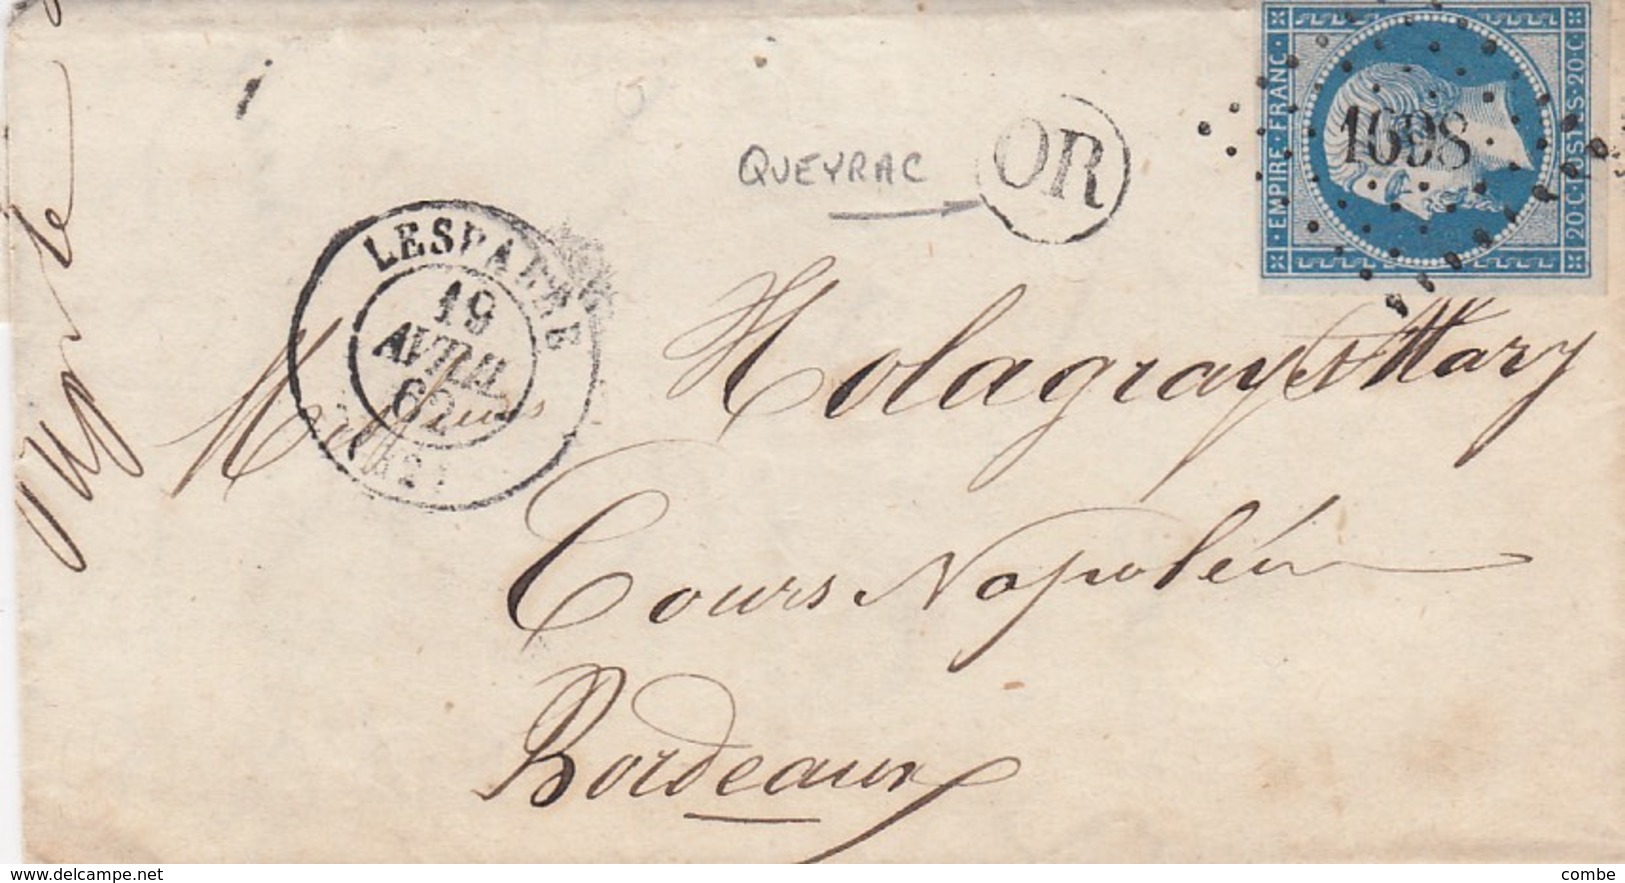 EMPIRE · FRANC ·
1698
20 · C · POSTES · 20 · C ·
OR
QUEYRAC
LESPARRE
19
AVRIL
62
Messieurs Holagray & Mary
Cours Napoléon
Bordeaux
delcampe.net
combe